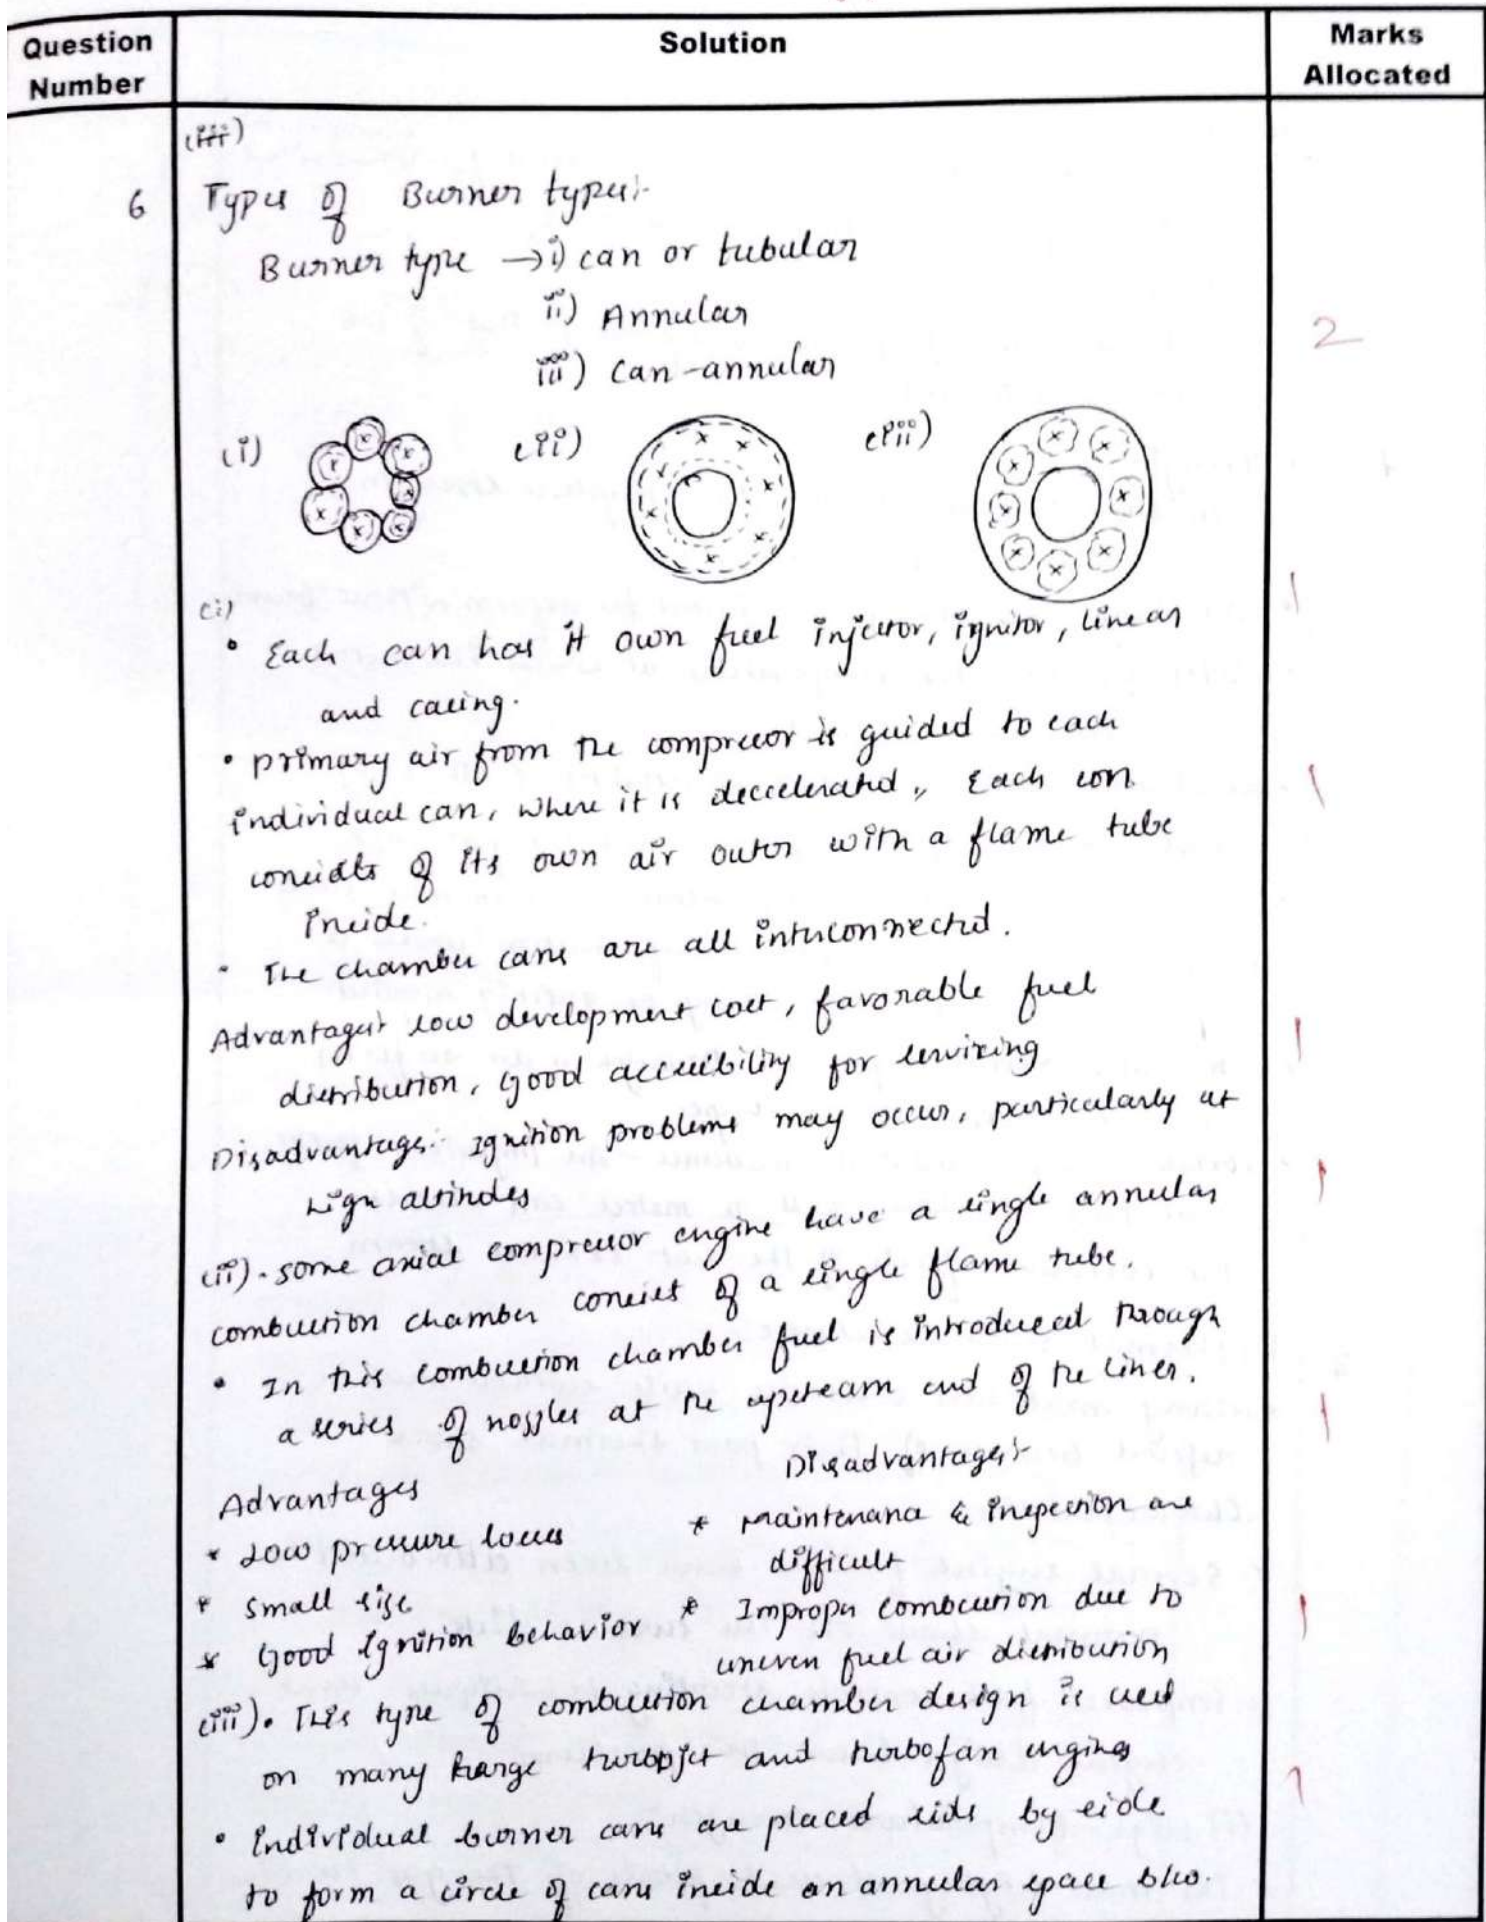 Question Number
Solution
Marks Allocated
(iii)
6
Types of Burner types:-
Burner type → i) can or tubular
ii) Annular
2
iii) Can-annular
(i) (ii) (iii)
(i)
1
• Each can has it own fuel injector, ignitor, linear
and casing.
• primary air from the compressor is guided to each
1
individual can, where it is deccelerated, Each can
consists of its own air outer with a flame tube
inside.
• The chamber cans are all interconnected.
Advantages:- low development cost, favorable fuel
1
distribution, Good accessibility for servizing
Disadvantages:- Ignition problems may occur, particularly at
1
high altitudes
(ii) • some axial compressor engine have a single annular
combustion chamber consist of a single flame tube.
• In this combustion chamber fuel is introduced through
a series of nozzles at the upsteam end of the liner.
1
Advantages
Disadvantages:-
* Low pressure losses
* Maintenance & inspection are
difficult
* Small size
* Improper combustion due to
1
* Good Ignition behavior
uneven fuel air distribution
(iii) • This type of combustion chamber design is used
on many large turbojet and turbofan engines
1
• individual burner cans are placed side by side
to form a circle of cans inside an annular space b/w.